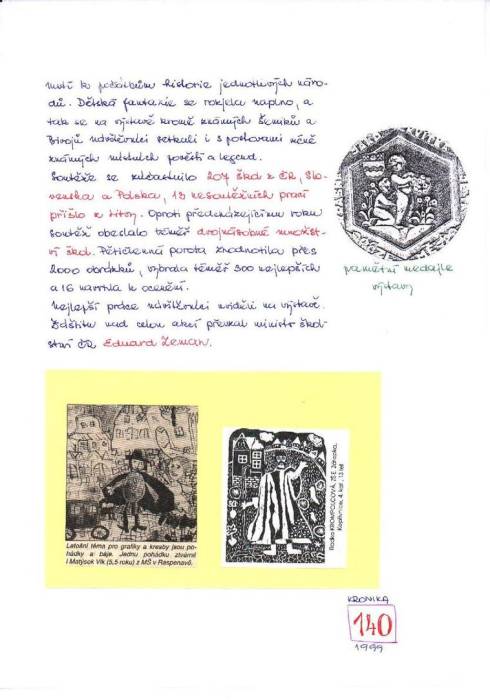 nutí k počátkům historie jednotlivých náro-
dů. Dětská fantazie se rozjela naplno, a
tak se na výstavě kromě známých Šemíků a
Bivojů návštěvníci setkali i s postavami méně
známých místních pověstí a legend.
Soutěže se zúčastnilo 207 škol z ČR, Slo-
venska a Polska, 13 nesoutěžních prací
přišlo z Litvy. Oproti předcházejícímu roku
soutěž obeslalo téměř dvojnásobné množst-
ví škol. Pětičlenná porota zhodnotila přes
2000 obrázků, vybrala téměř 300 nejlepších
a 16 navrhla k ocenění.
Nejlepší práce návštěvníci uviděli na výstavě.
Záštitu nad celou akcí převzal ministr škol-
ství ČR Eduard Zeman.
pamětní medajle
výstavy
Letošní téma pro grafiky a kresby jsou po-
hádky a báje. Jednu pohádku ztvárnil
i Matýsek Vik (5,5 roku) z MŠ v Raspenavě.
Radka KROMPOLCOVÁ, ZŠ E. Zátopka,
Kopřivnice, 4. kat., 13 let
KRONIKA
140
1999